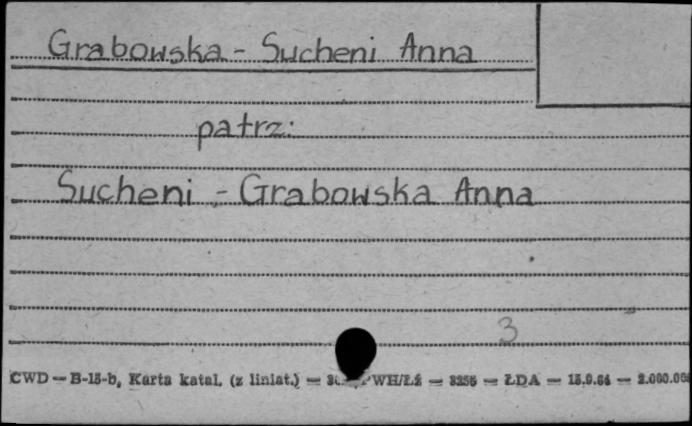 Grabowska - Sucheni Anna
patrz:
Sucheni - Grabowska Anna
3
CWD — B-15-b, Karta katal. (z liniat.) — PWH/Łź — 3255 — ŁDA — 15.9.64 —